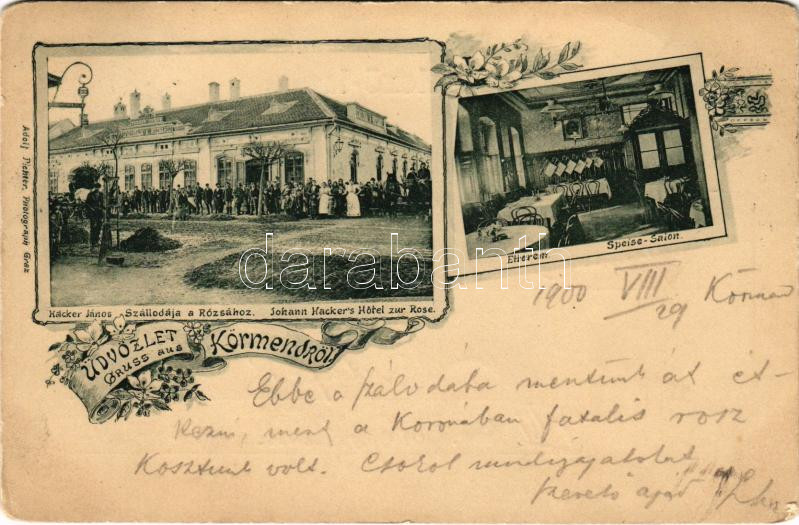 Adolf Pichler, Photograph Graz
Häcker János Szállodája a Rózsához. Johann Hacker's Hôtel zur Rose.
Étterem Speise-Salon.
ÜDVÖZLET
Gruss aus
Körmendről!
darabanth
1900 VIII 29 Körmend
Ebbe a szálodába mentünk át ét-
kezni, mert a Koronában fatális rosz
Kosztunk volt. Csókol mindigajatokat
szerető apád